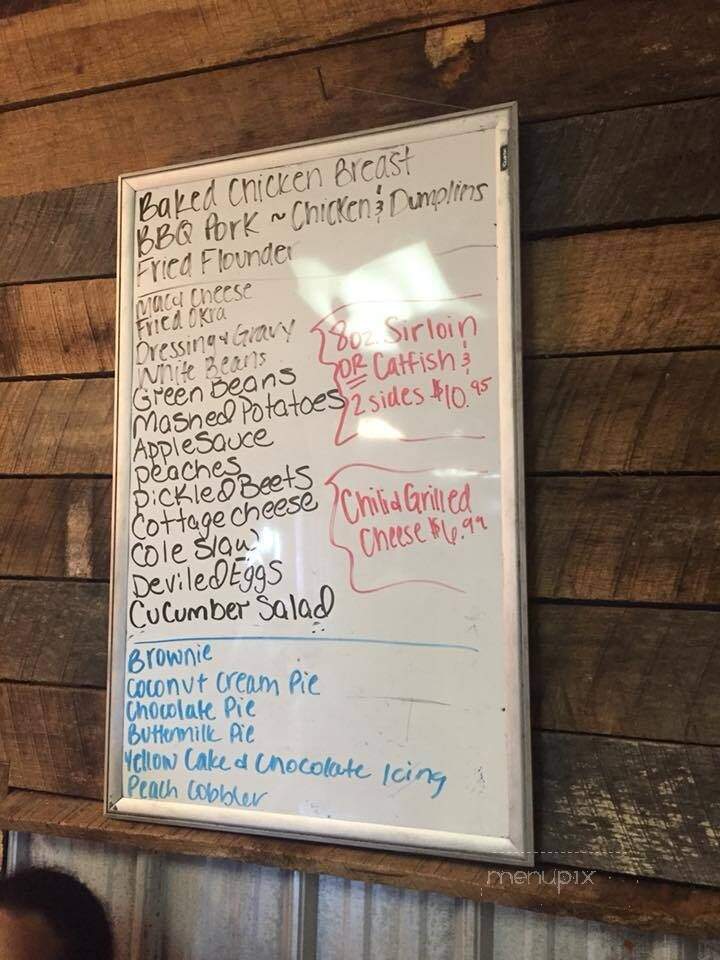 Baked Chicken Breast
BBQ Pork ~ Chicken & Dumplins
Fried Flounder
Mac & Cheese
Fried Okra
Dressing & Gravy
White Beans
Green Beans
Mashed Potatoes
Applesauce
peaches
pickled Beets
Cottage cheese
Cole Slaw
Deviled Eggs
Cucumber Salad
8oz. Sirloin
OR Catfish &
2 sides $10.95
Chili & Grilled
Cheese $6.99
Brownie
Coconut Cream Pie
Chocolate Pie
Buttermilk Pie
Yellow Cake & Chocolate Icing
Peach Cobbler
menupix